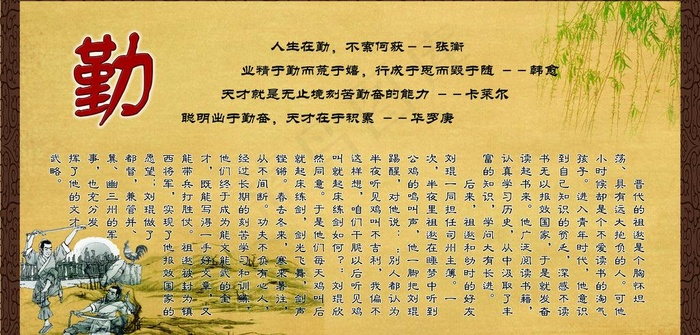 勤
人生在勤，不索何获－－张衡
业精于勤而荒于嬉，行成于思而毁于随 －－韩愈
天才就是无止境刻苦勤奋的能力 －－卡莱尔
聪明出于勤奋，天才在于积累 －－华罗庚
晋代的祖逖是个胸怀坦
荡、具有远大抱负的人。可他
小时候却是个不爱读书的淘气
孩子。进入青年时代，他意识
到自己知识的贫乏，深感不读
书无以报效国家，于是就发奋
读起书来。他广泛阅读书籍，
认真学习历史，从中汲取了丰
富的知识，学问大有长进。
后来，祖逖和幼时的好友
刘琨一同担任司州主簿。一
次，半夜里祖逖在睡梦中听到
公鸡的鸣叫声，他一脚把刘琨
踢醒，对他说：别人都认为
半夜听见鸡叫不吉利，我偏不
这样想，咱们干脆以后听见鸡
叫就起床练剑如何？：刘琨欣
然同意。于是他们每天鸡叫后
就起床练剑，剑光飞舞，剑声
铿锵。春去冬来，寒来暑往，
从不间断。功夫不负有心人，
经过长期的刻苦学习和训练，
他们终于成为能文能武的全
才，既能写得一手好文章，又
能带兵打胜仗。祖逖被封为镇
西将军，实现了他报效国家的
愿望；刘琨做了
都督，兼管并、
冀、幽三州的军
事，也充分发
挥了他的文才
武略。